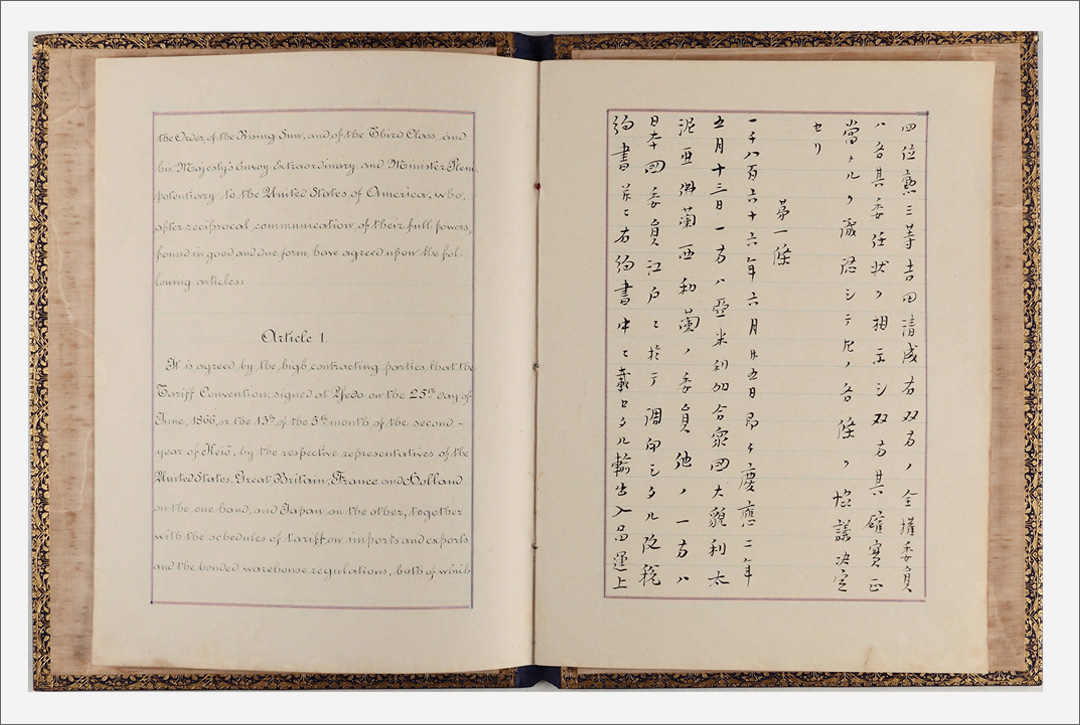 the Order of the Rising Sun, and of the Third Class, and
his Majesty's Envoy Extraordinary and Minister Pleni
potentiary to the United States of America, who,
after reciprocal communication of their full powers,
found in good and due form, have agreed upon the fol-
lowing articles:
Article 1
It is agreed by the high contracting parties that the
Tariff Convention, signed at Yedo on the 25th day of
June, 1866, or the 13th of the 5th month of the second
year of Keiō, by the respective representatives of the
United States, Great Britain, France and Holland
on the one hand, and Japan on the other, together
with the schedules of tariff on imports and exports
and the bonded warehouse regulations, both of which
四位勲三等吉田清成右双方ノ全権委員
ハ各其委任状ヲ相示シ双方其確實正
當ナルヲ認シテ左ノ各條ヲ協議決定
セリ
第一條
一千八百六十六年六月廿五日即チ慶應二年
五月十三日一方ハ亞米利加合衆國大貌利太
泥亜佛蘭西和蘭ノ委員他ノ一方ハ
日本國委員江戸ニ於テ調印シタル改税
約書並ニ右約書中ニ載セタル輸出入品運上